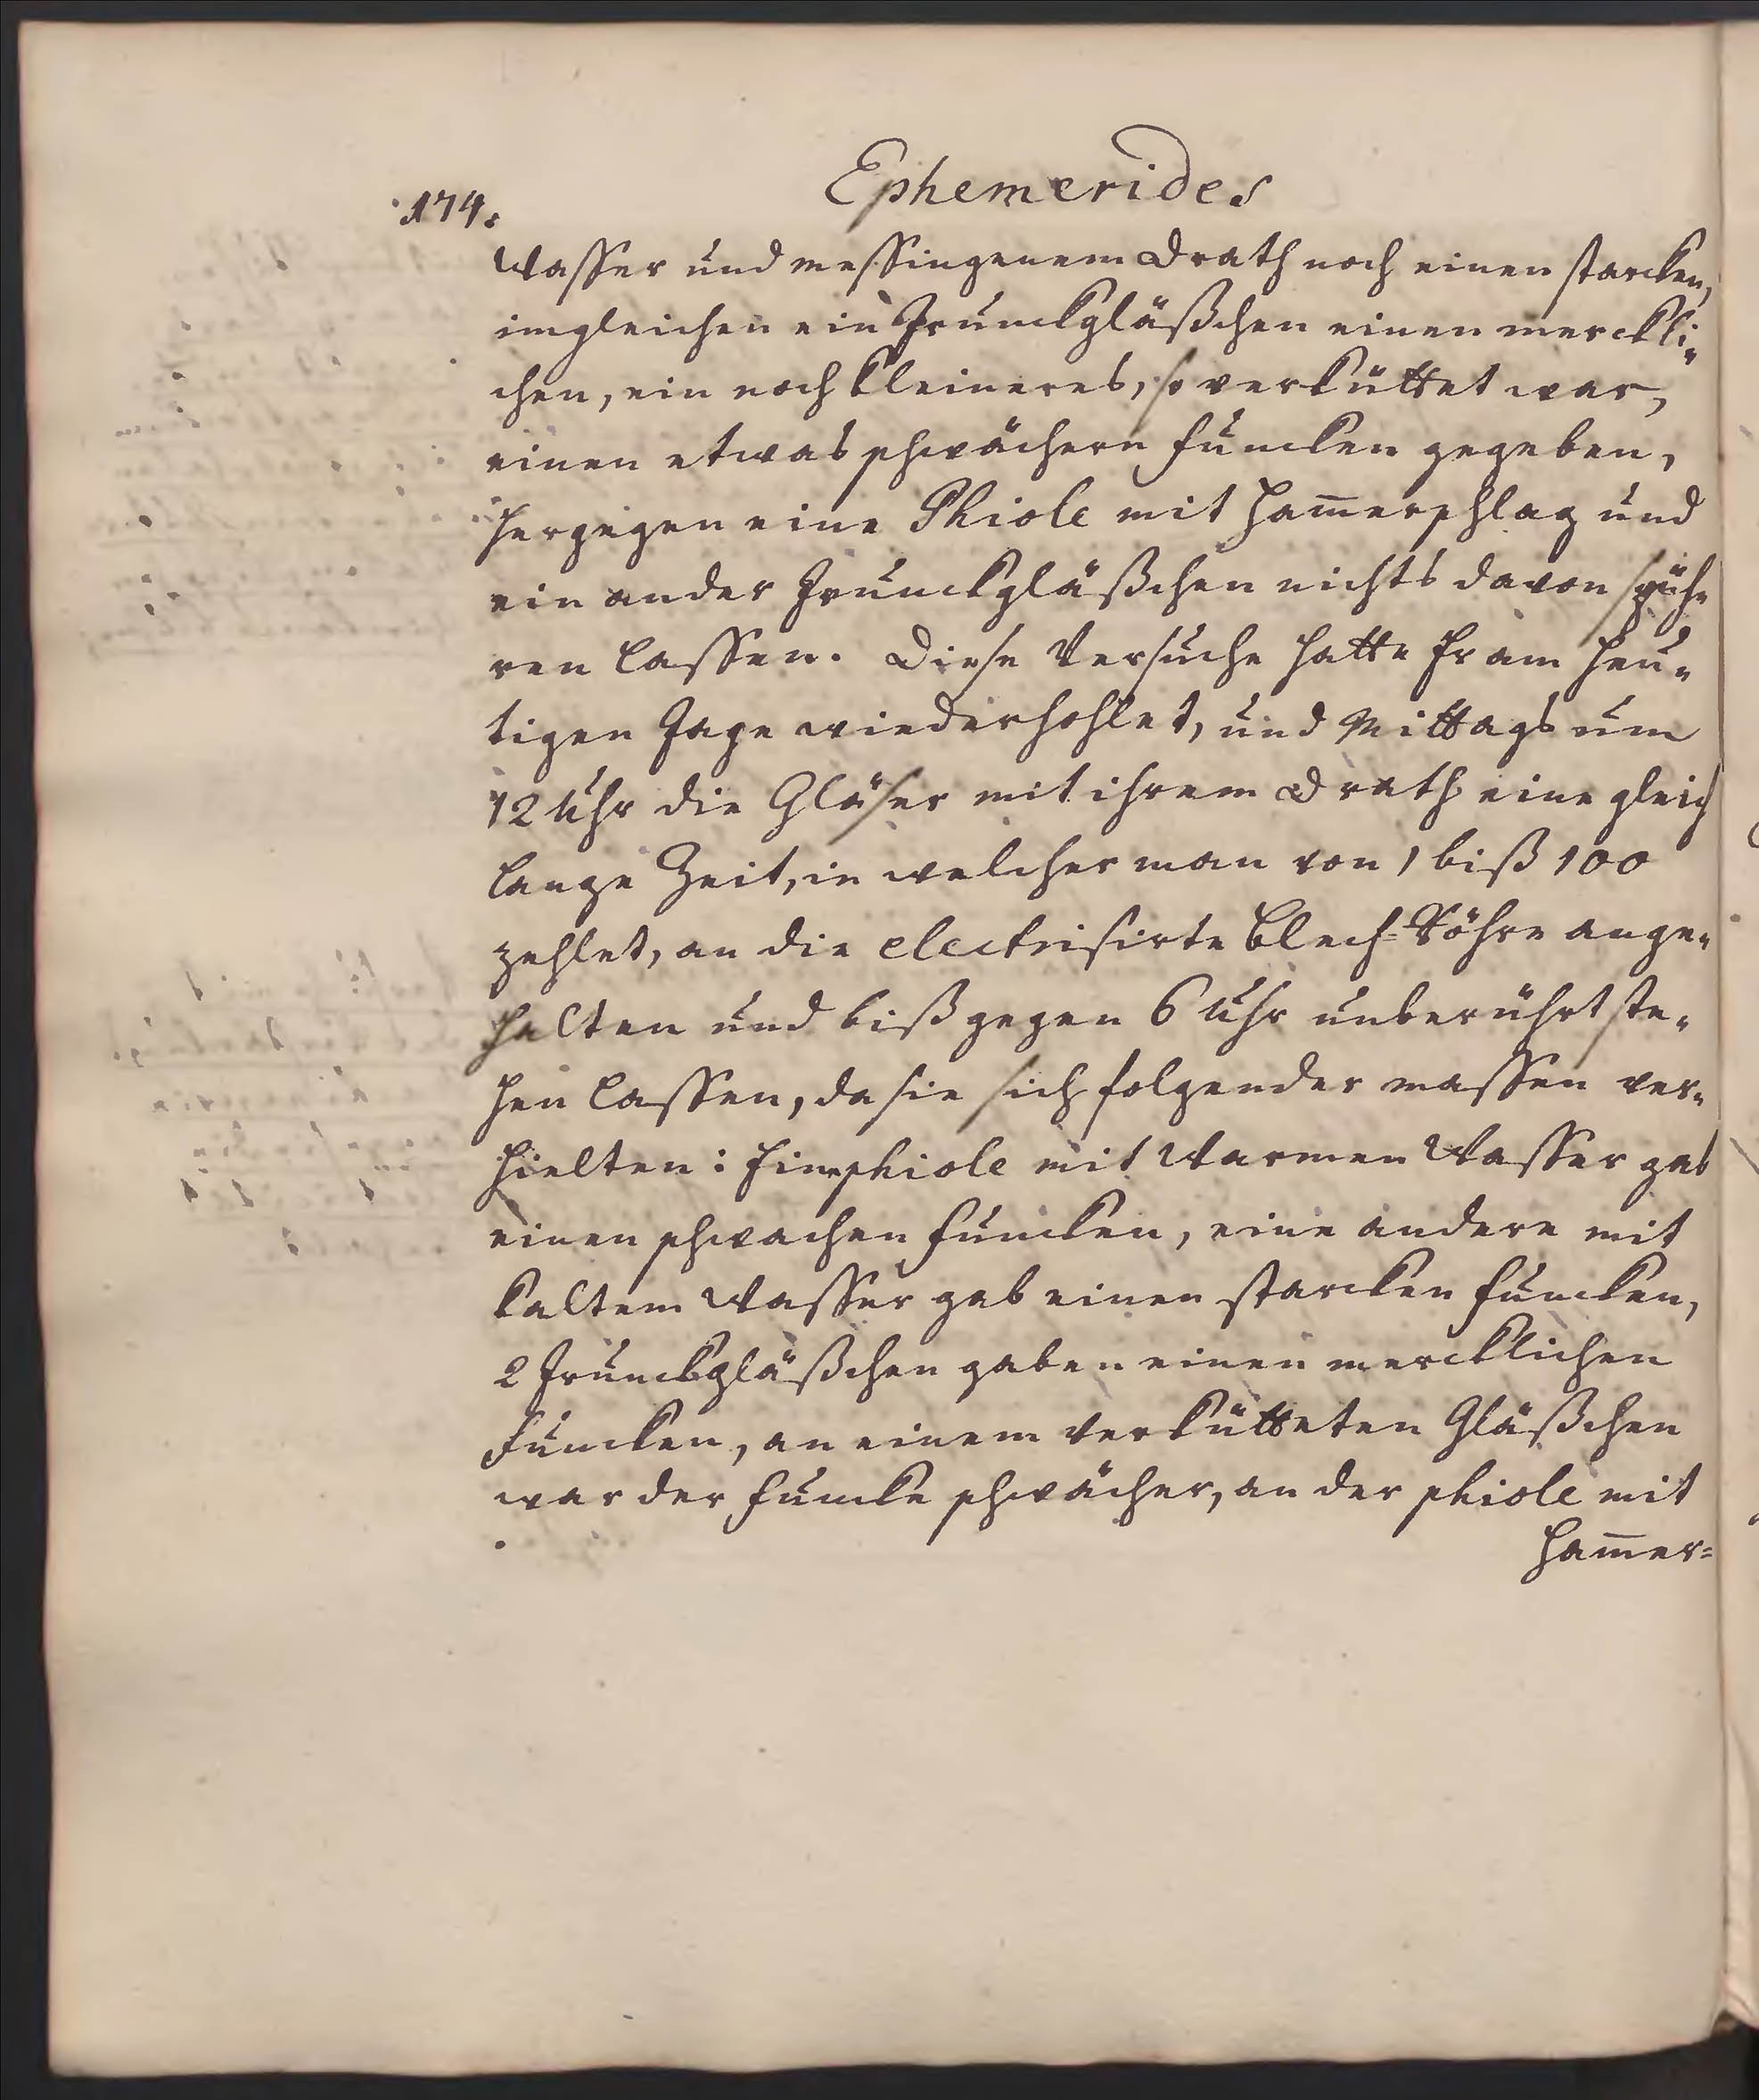 Ephemerides
174.
Wasser und messingenem Drath noch einen starcken,
imgleichen ein Trunckgläßchen einen merckli-
chen, ein noch kleineres, so verküttet war,
einen etwas schwächern Funcken gegeben,
hergegen eine Phiole mit Ham̅erschlag und
ein ander Trunckgläßchen nichts davon spüh-
ren lassen. Diese Versuche hatte Er am heu-
tigen Tage wiederhohlet, und Mittags um
12 Uhr die Gläser mit ihrem Drath eine gleich
lange Zeit, in welcher man von 1 biß 100
zehlet, an die electrisirte Blech-Röhre ange-
halten und biß gegen 6 Uhr unberührt ste-
hen lassen, da sie sich folgender massen ver-
hielten: Eine phiole mit Warmen Wasser gab
einen schwachen Funcken, eine andere mit
kaltem Wasser gab einen starcken Funcken,
2 Trunckgläßchen gaben einen mercklichen
Funcken, an einem verkütteten Gläßchen
war der Funcke schwächer, an der phiole mit
Ham̅er=